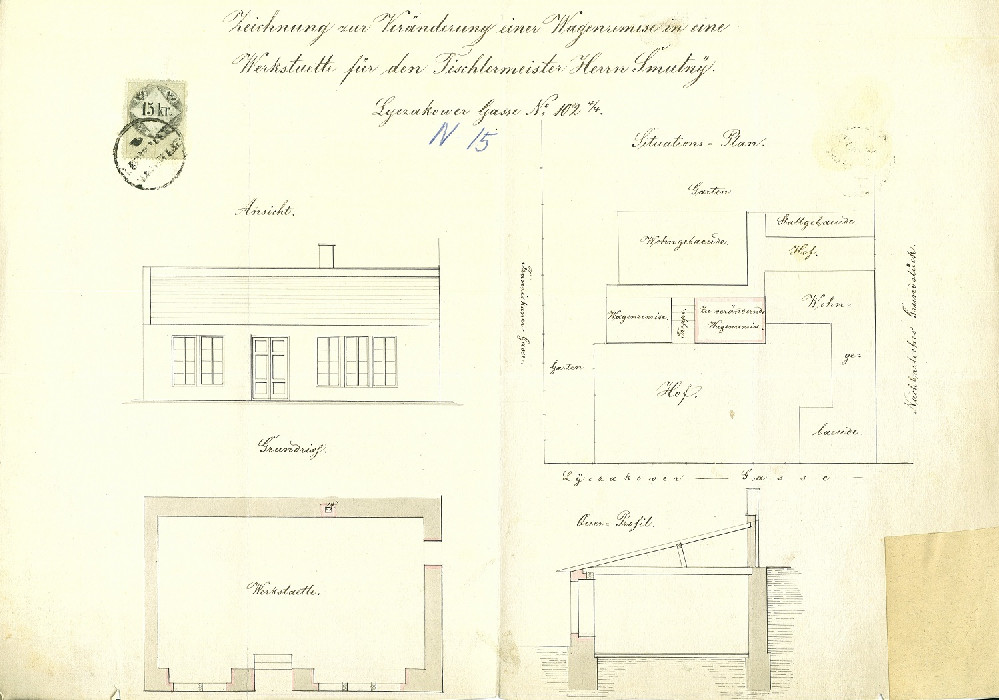 Zeichnung zur Veränderung einer Wagenremise in eine
Werkstaette für den Tischlermeister Herrn Smutný.
Lyczakower Gasse No 102 4/4.
N 15
15 kr.
Situations-Plan.
Ansicht.
Garten
Wohngebaeude.
Stallgebaeude
Hof.
Wagenremise.
Treppe
Zu verändernde
Wagenremise.
Wohn-
ge-
baeude.
Garten
Hof.
Gasse
Nachbarliches Grundstück.
Lyczakower Gasse
Grundriss.
Werkstaette.
Quer-Profil.